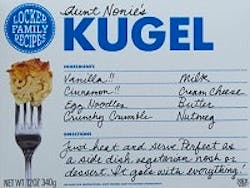 LOCKER
FAMILY
RECIPES
Aunt Nonie's
KUGEL
INGREDIENTS
Vanilla!! Milk
Cinnamon!! Cream Cheese
Egg Noodles Butter
Crunchy Crumble Nutmeg
DIRECTIONS
Just heat and serve Perfect as
a side dish, vegetarian nosh or
dessert. It goes with everything
NET WT 12OZ 340g